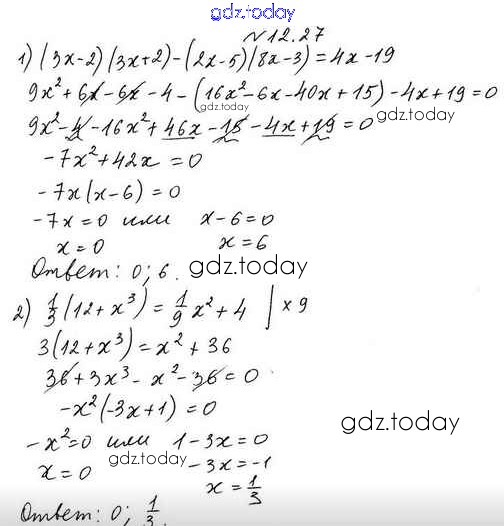 gdz.today
№12.27
1) (3x-2)(3x+2)-(2x-5)(8x-3)=4x-19
9x²+6x-6x-4-(16x²-6x-40x+15)-4x+19=0
gdz.today
9x²-4-16x²+46x-15-4x+19=0
-7x²+42x=0
gdz.today
-7x(x-6)=0
-7x=0 или x-6=0
x=0 x=6
Ответ: 0; 6. gdz.today
2) 1/3(12+x³)=1/9x²+4 | ×9
3(12+x³)=x²+36
36+3x³-x²-36=0
-x²(-3x+1)=0
gdz.today
-x²=0 или 1-3x=0
x=0 gdz.today -3x=-1
x=1/3
Ответ: 0; 1/3.